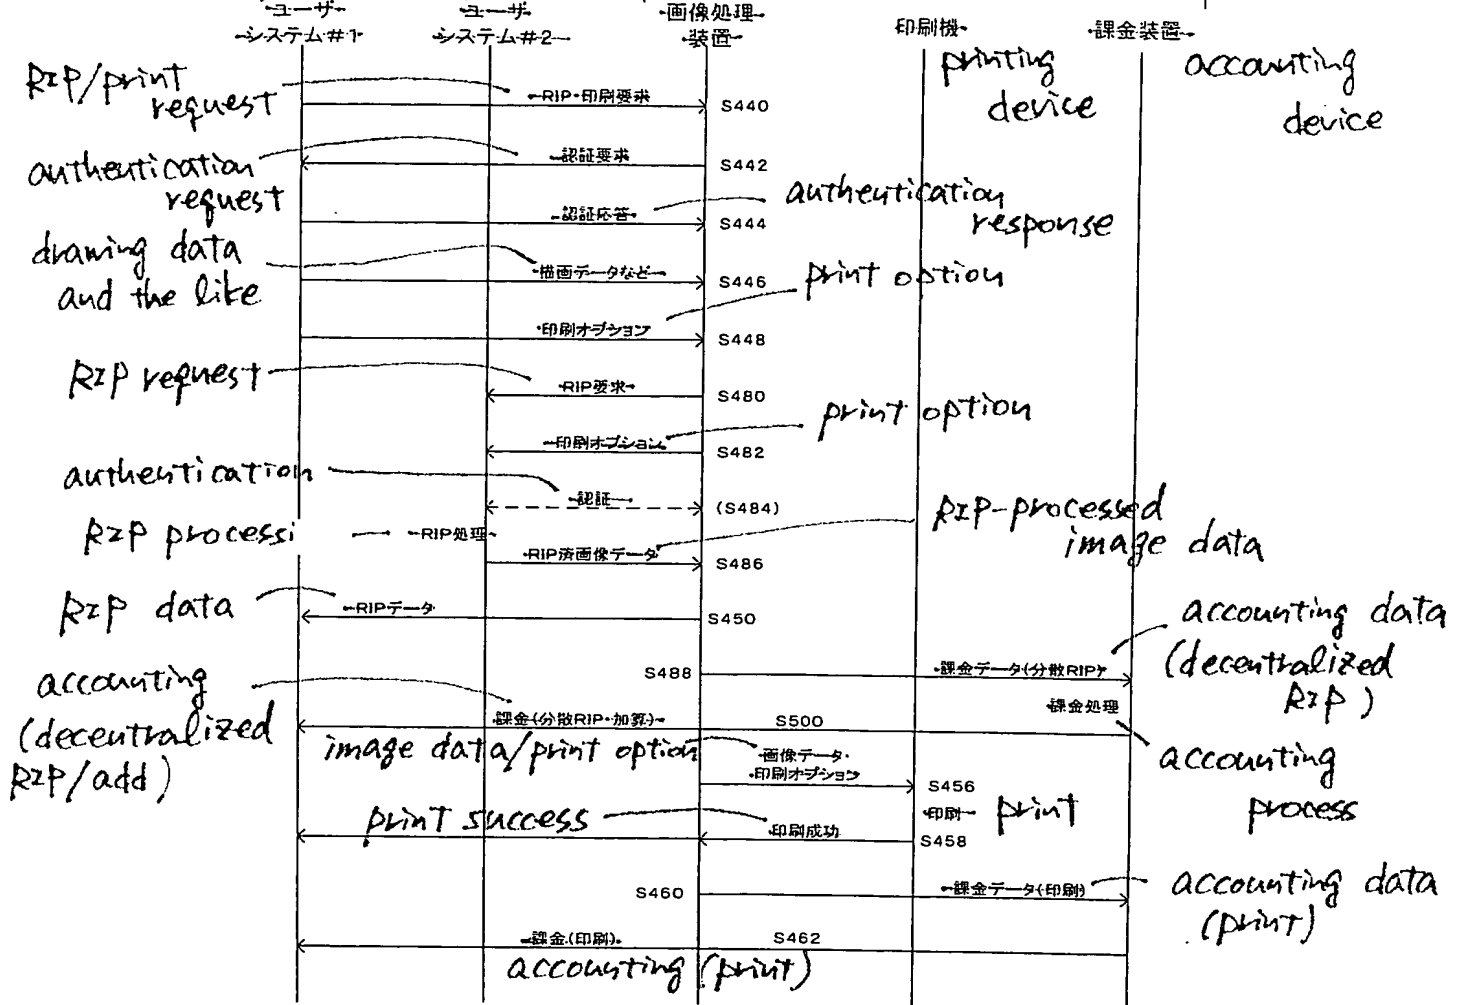 ユーザ
システム#1
ユーザ
システム#2
画像処理
装置
印刷機
課金装置
printing
device
accounting
device
RIP/print
request
RIP・印刷要求
S440
authentication
request
認証要求
S442
認証応答
S444
authentication
response
drawing data
and the like
描画データなど
S446
print option
印刷オプション
S448
RIP request
RIP要求
S480
print option
印刷オプション
S482
authentication
認証
(S484)
RIP processi
RIP処理
RIP-processed
image data
RIP済画像データ
S486
RIP data
RIPデータ
S450
accounting data
(decentralized
RIP)
S488
課金データ(分散RIP)
課金処理
accounting
(decentralized
RIP/add)
課金(分散RIP・加算)
S500
accounting
process
image data/print option
画像データ・
印刷オプション
S456
印刷
print
print success
印刷成功
S458
S460
課金データ(印刷)
accounting data
(print)
課金(印刷)
S462
accounting (print)